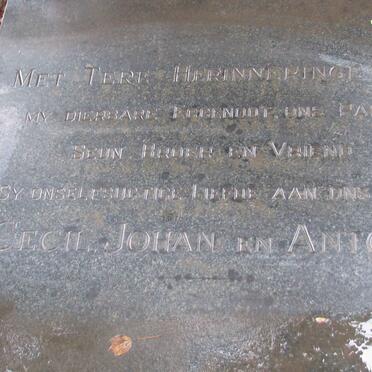 MET TERE HERINNERINGE
MY DIERBARE EGGENOOT ONS PA
SEUN BROER EN VRIEND
SY ONSELFSUGTIGE LIEFDE AAN ONS
CECIL, JOHAN EN ANTO